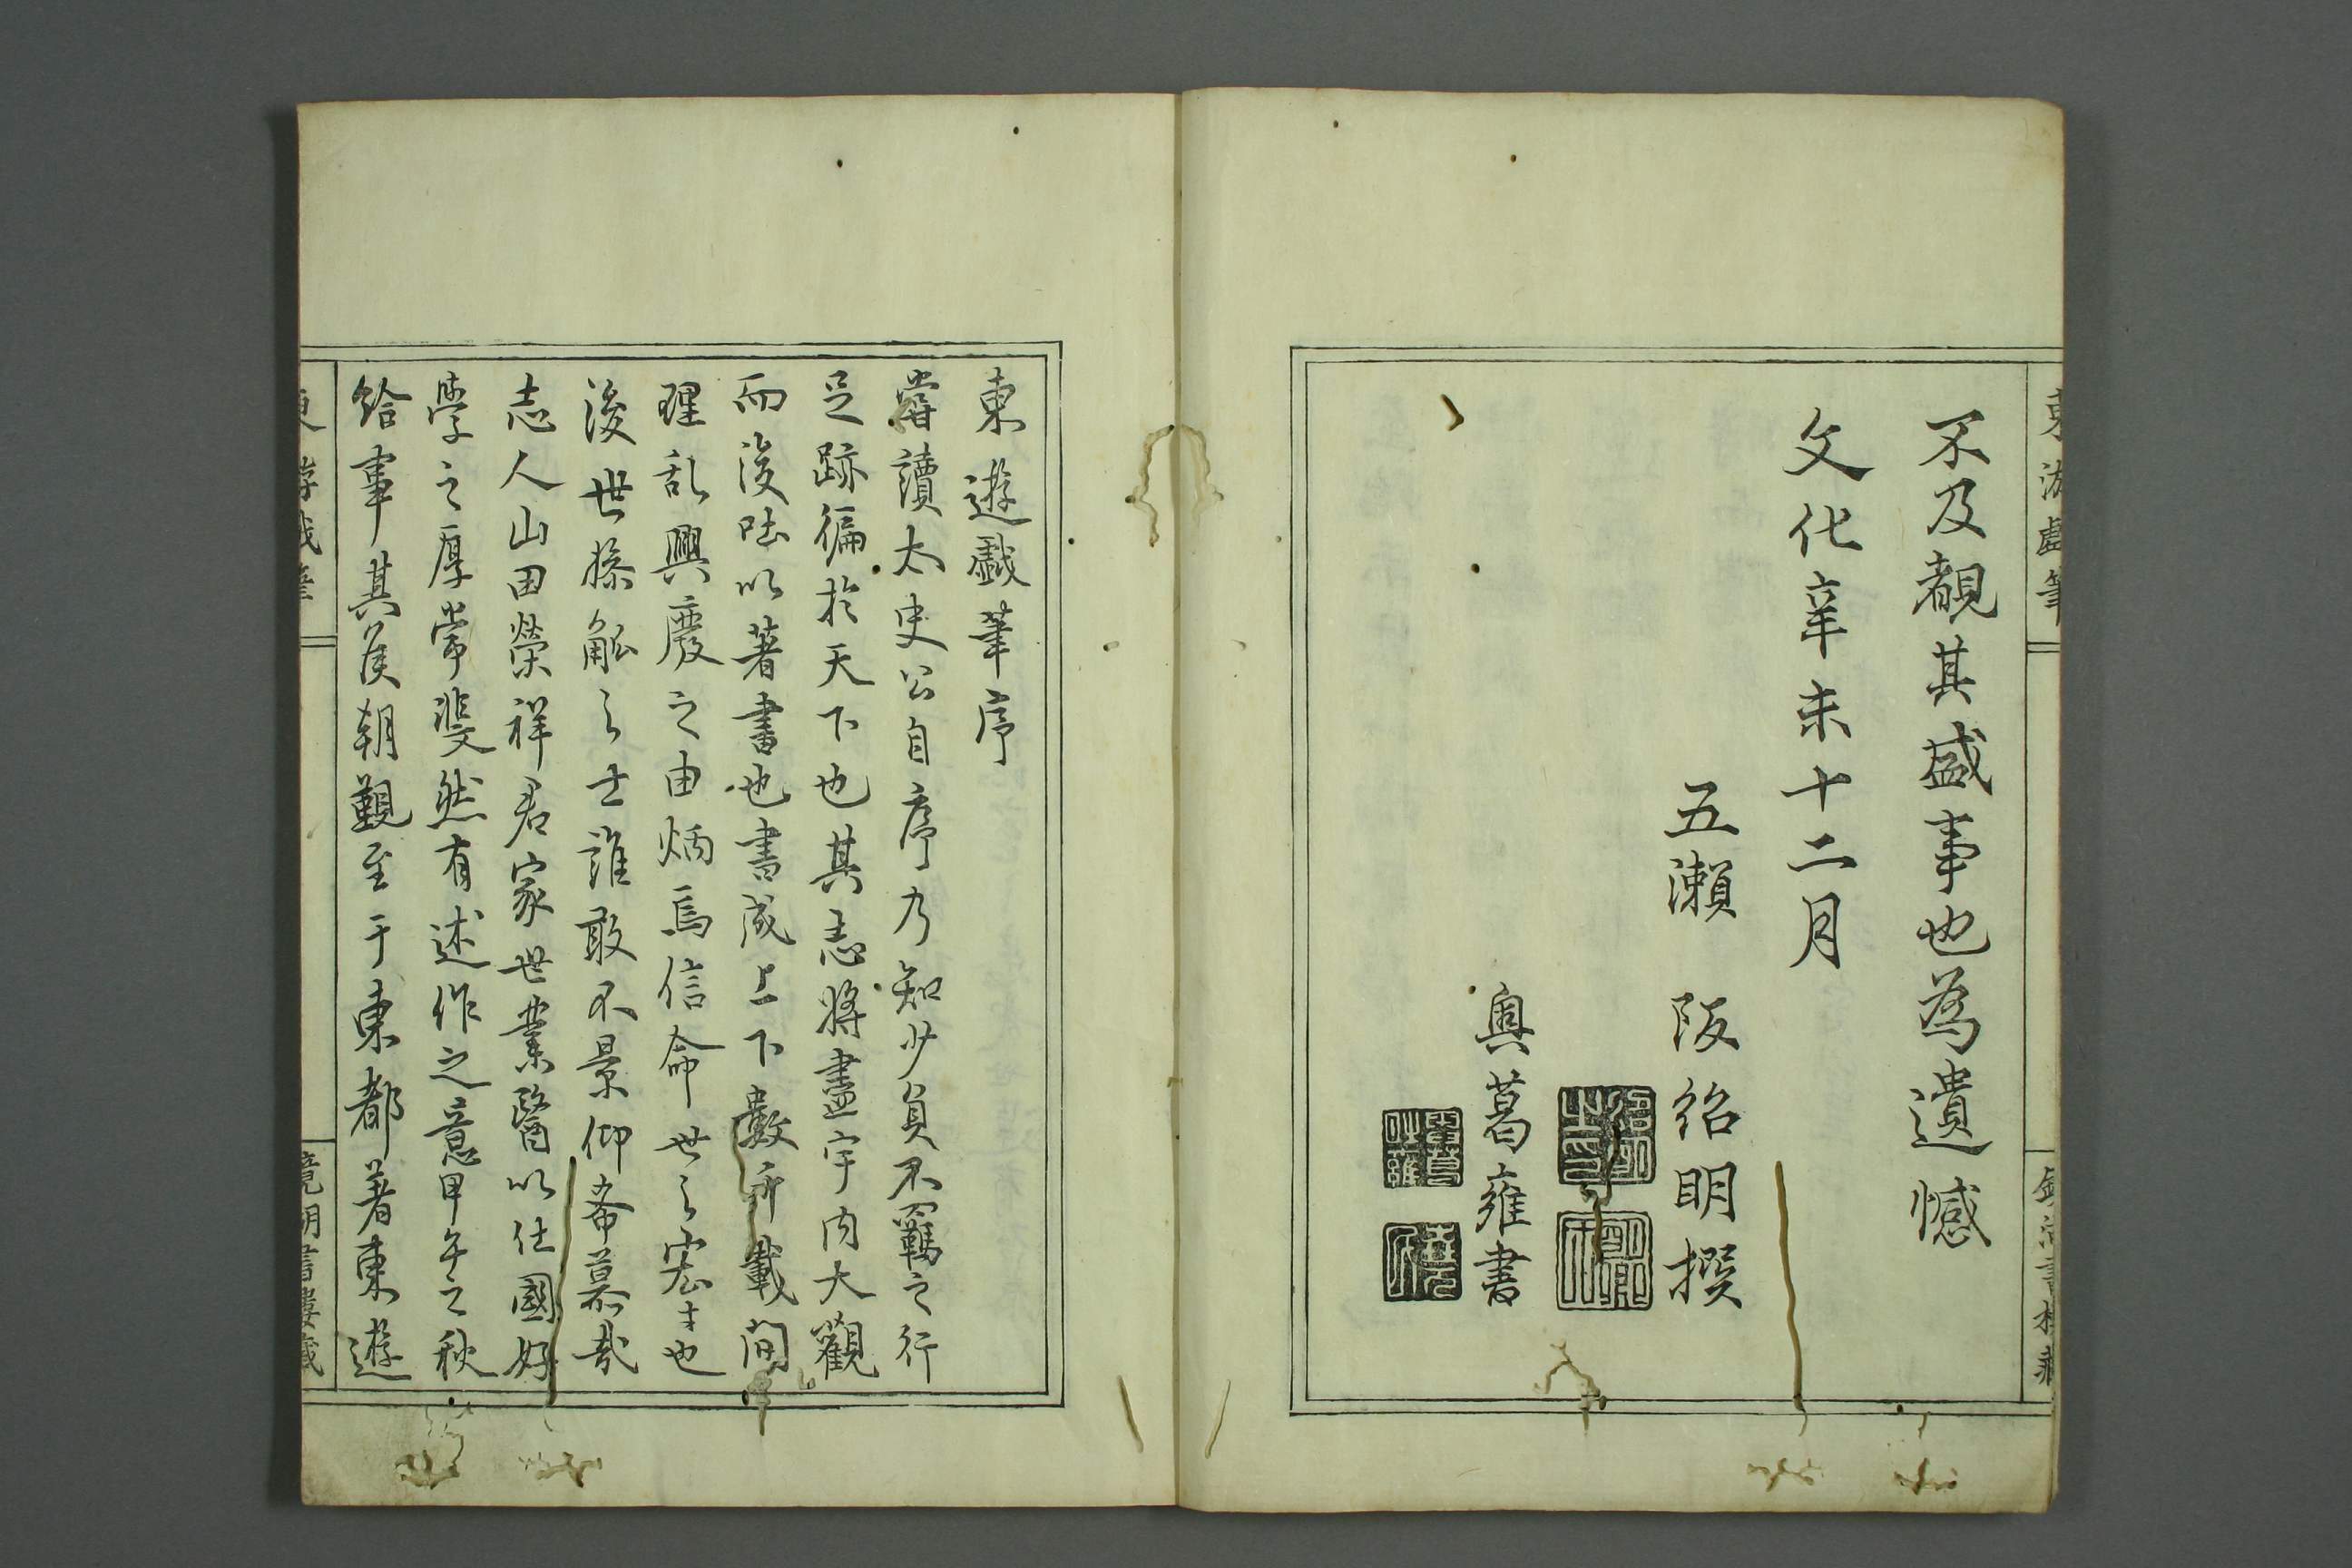 不及覩其盛事也為遺憾
文化辛未十二月
五瀨 阪紹明撰
奥葛雍書
東遊戲筆序
嘗讀太史公自序乃知少負不羈之行
足跡徧於天下也其志將盡宇內大觀
而後咗以著書也書成上下數所載間
理乱興廢之由炳焉信命世之宏才也
後世操觚之士誰敢不景仰希慕哉
志人山田榮祥君家世業醫以仕國好
學之厚常斐然有述作之意甲午之秋
給事其侯朝覲至于東都著東遊